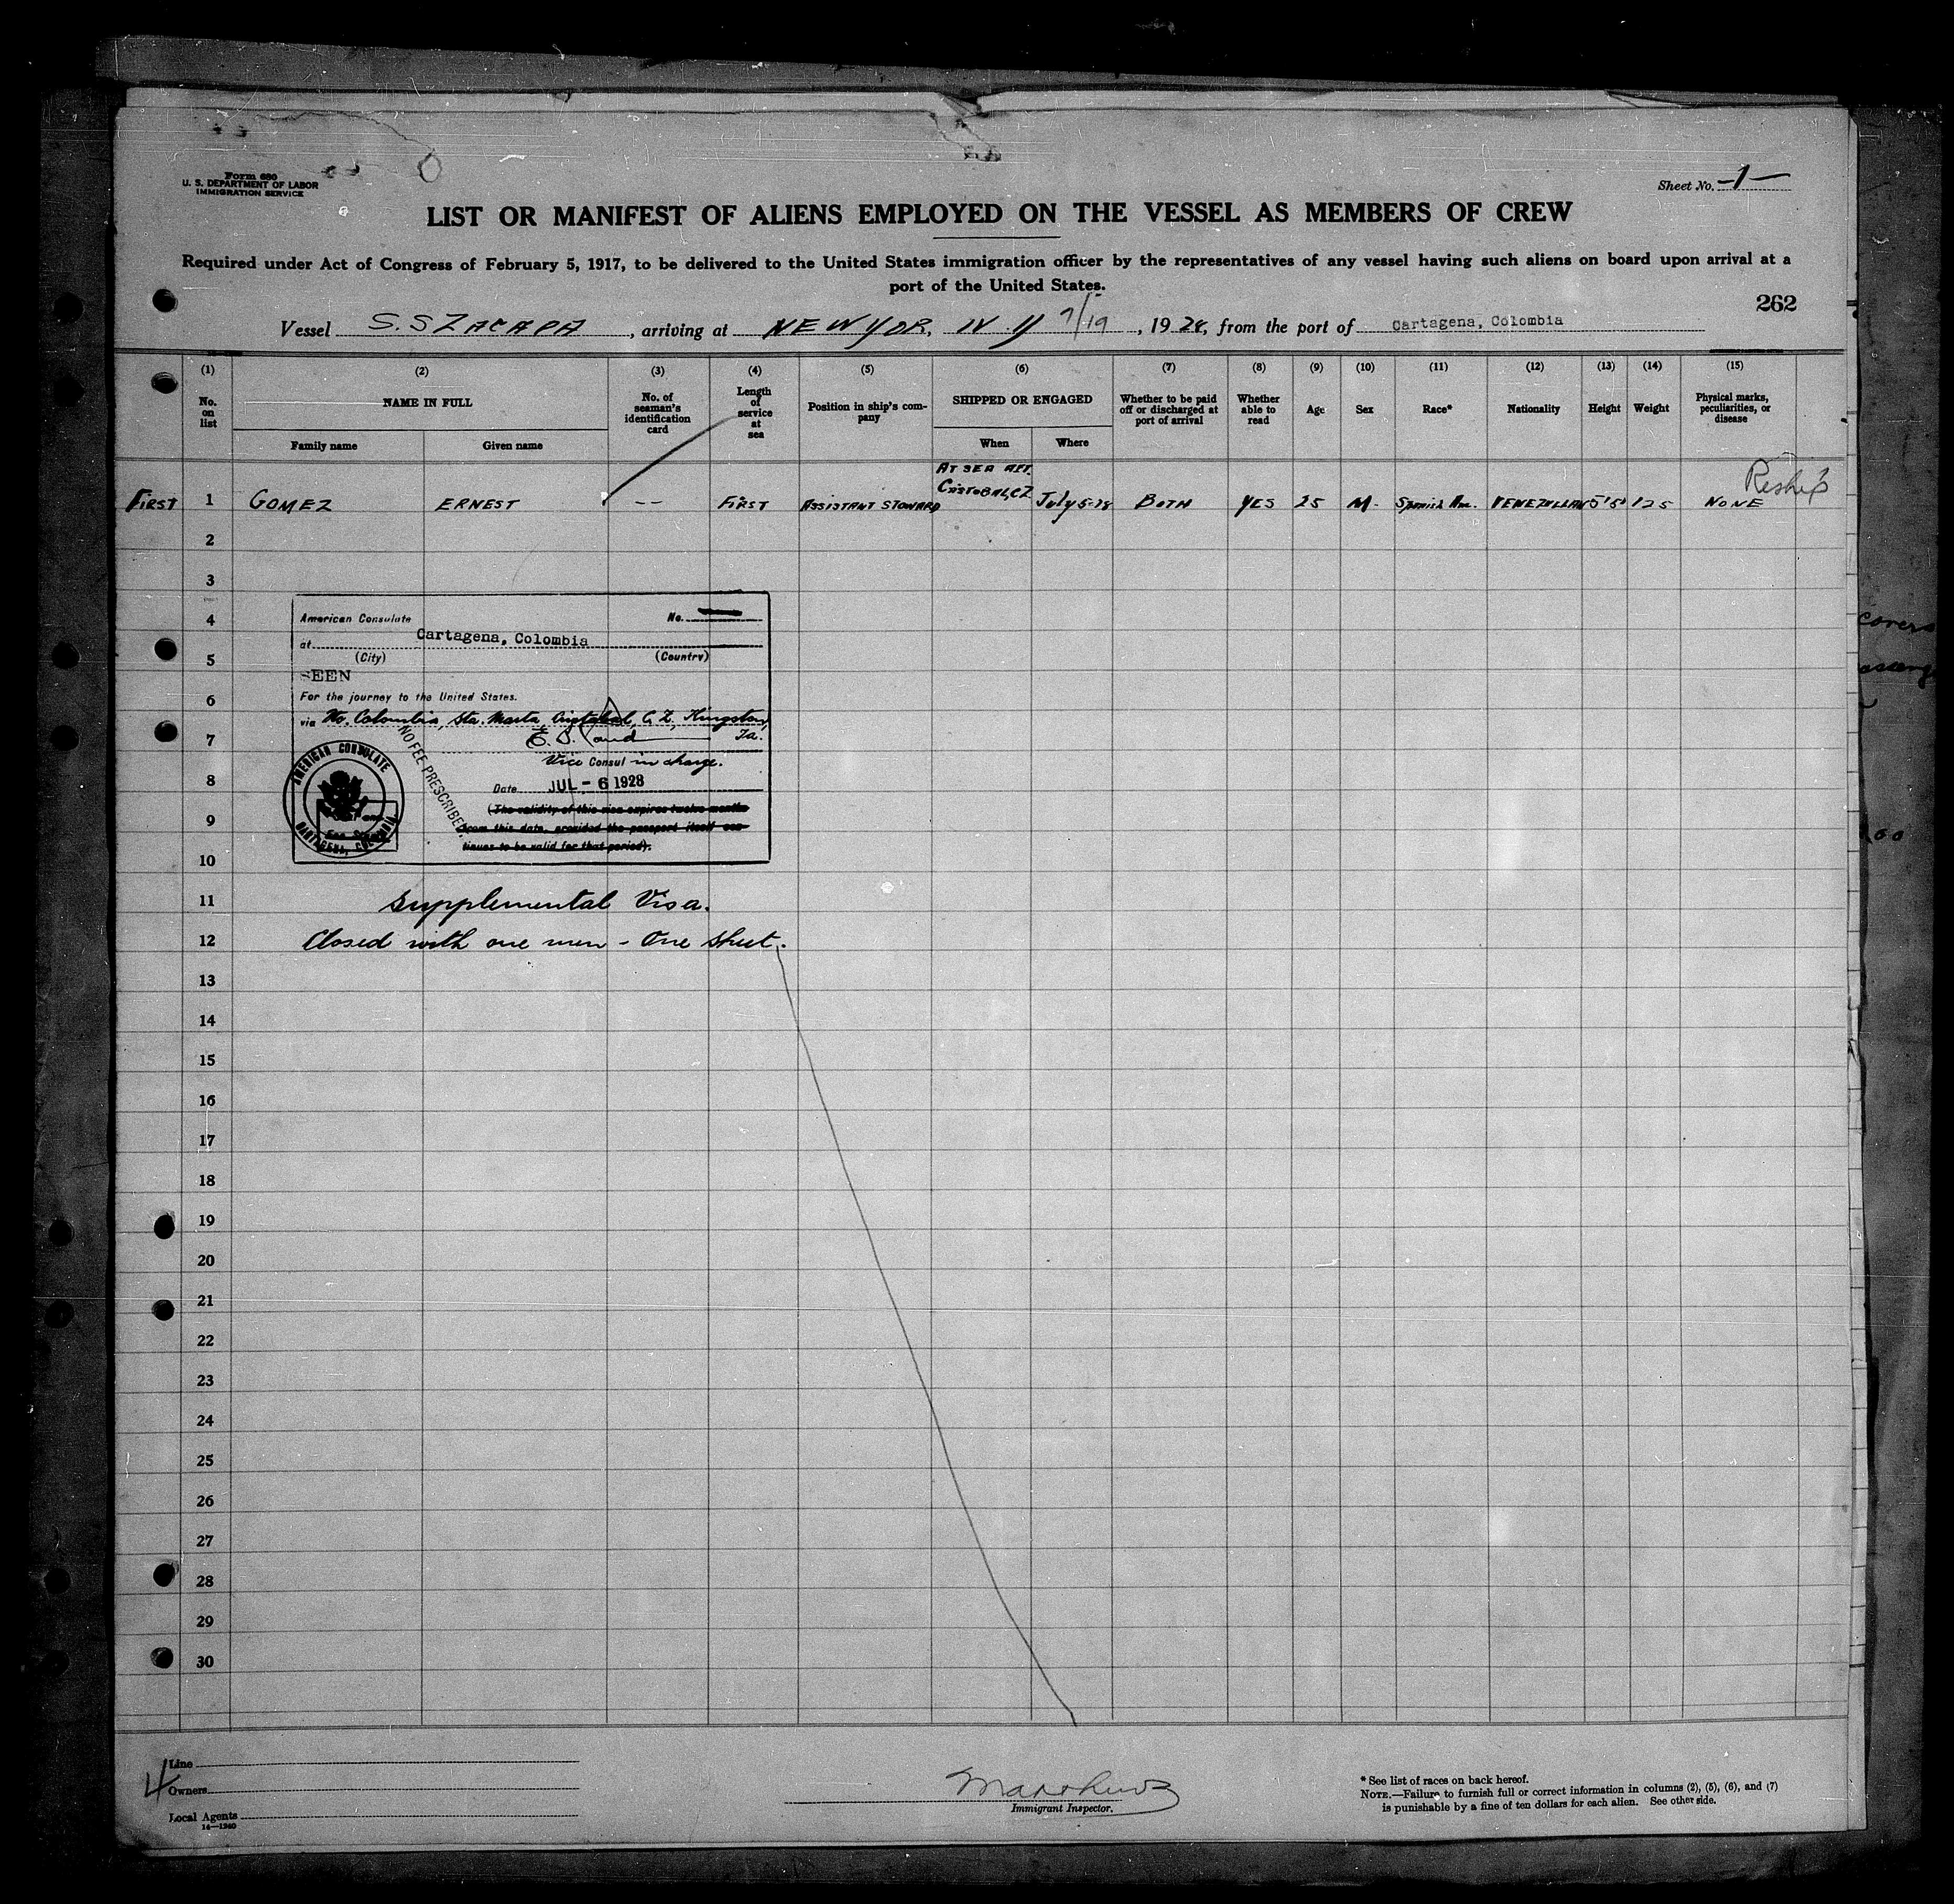 Form 680
U. S. DEPARTMENT OF LABOR
IMMIGRATION SERVICE
Sheet No. -1-
LIST OR MANIFEST OF ALIENS EMPLOYED ON THE VESSEL AS MEMBERS OF CREW
Required under Act of Congress of February 5, 1917, to be delivered to the United States immigration officer by the representatives of any vessel having such aliens on board upon arrival at a
port of the United States.
262
Vessel S.S ZACAPA, arriving at NEW YOR, N.Y 7/19, 1928, from the port of Cartagena, Colombia
(1) (2) (3) (4) (5) (6) (7) (8) (9) (10) (11) (12) (13) (14) (15)
No. on list
NAME IN FULL
Family name
Given name
No. of seaman's identification card
Length of service at sea
Position in ship's company
SHIPPED OR ENGAGED
When
Where
Whether to be paid off or discharged at port of arrival
Whether able to read
Age
Sex
Race*
Nationality
Height
Weight
Physical marks, peculiarities, or disease
AT SEA AFT.
CRISTOBAL, CZ
Reship
FIRST 1 GOMEZ ERNEST -- FIRST ASSISTANT STOWARD July 5-28 BOTH YES 25 M. Spanish Am. VENEZULLAN 5'5" 125 NONE
2
3
4
5
6
7
8
9
10
11
12
13
14
15
16
17
18
19
20
21
22
23
24
25
26
27
28
29
30
American Consulate No.
at Cartagena, Colombia
(City) (Country)
SEEN
For the journey to the United States.
via Colombia, Sta. Marta, Cristobal, C.Z., Kingston,
Ja.
Vice Consul in charge.
Date JUL - 6 1928
(The validity of this visa expires twelve months
from this date, provided the passport itself con-
tinues to be valid for that period).
NO FEE PRESCRIBED
AMERICAN CONSULATE
CARTAGENA, COLOMBIA
Supplemental Visa.
Closed with one men - One sheet.
4
Line
Owners
Local Agents
14—1240
Immigrant Inspector.
* See list of races on back hereof.
NOTE.—Failure to furnish full or correct information in columns (2), (5), (6), and (7)
is punishable by a fine of ten dollars for each alien. See other side.